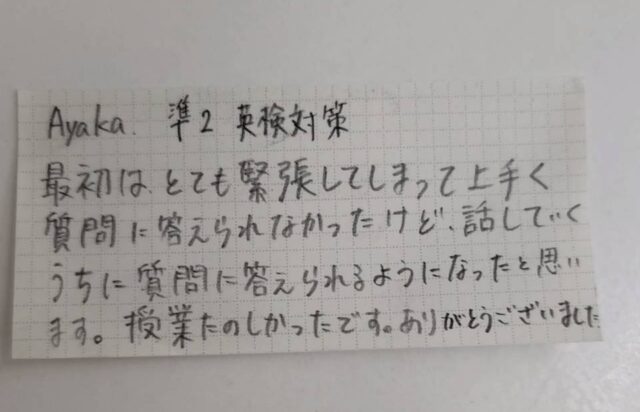 Ayaka. 準2 英検対策
最初は とても緊張してしまって上手く
質問に答えられなかったけど、話していく
うちに質問に答えられるようになったと思い
ます。授業たのしかったです。ありがとうございました